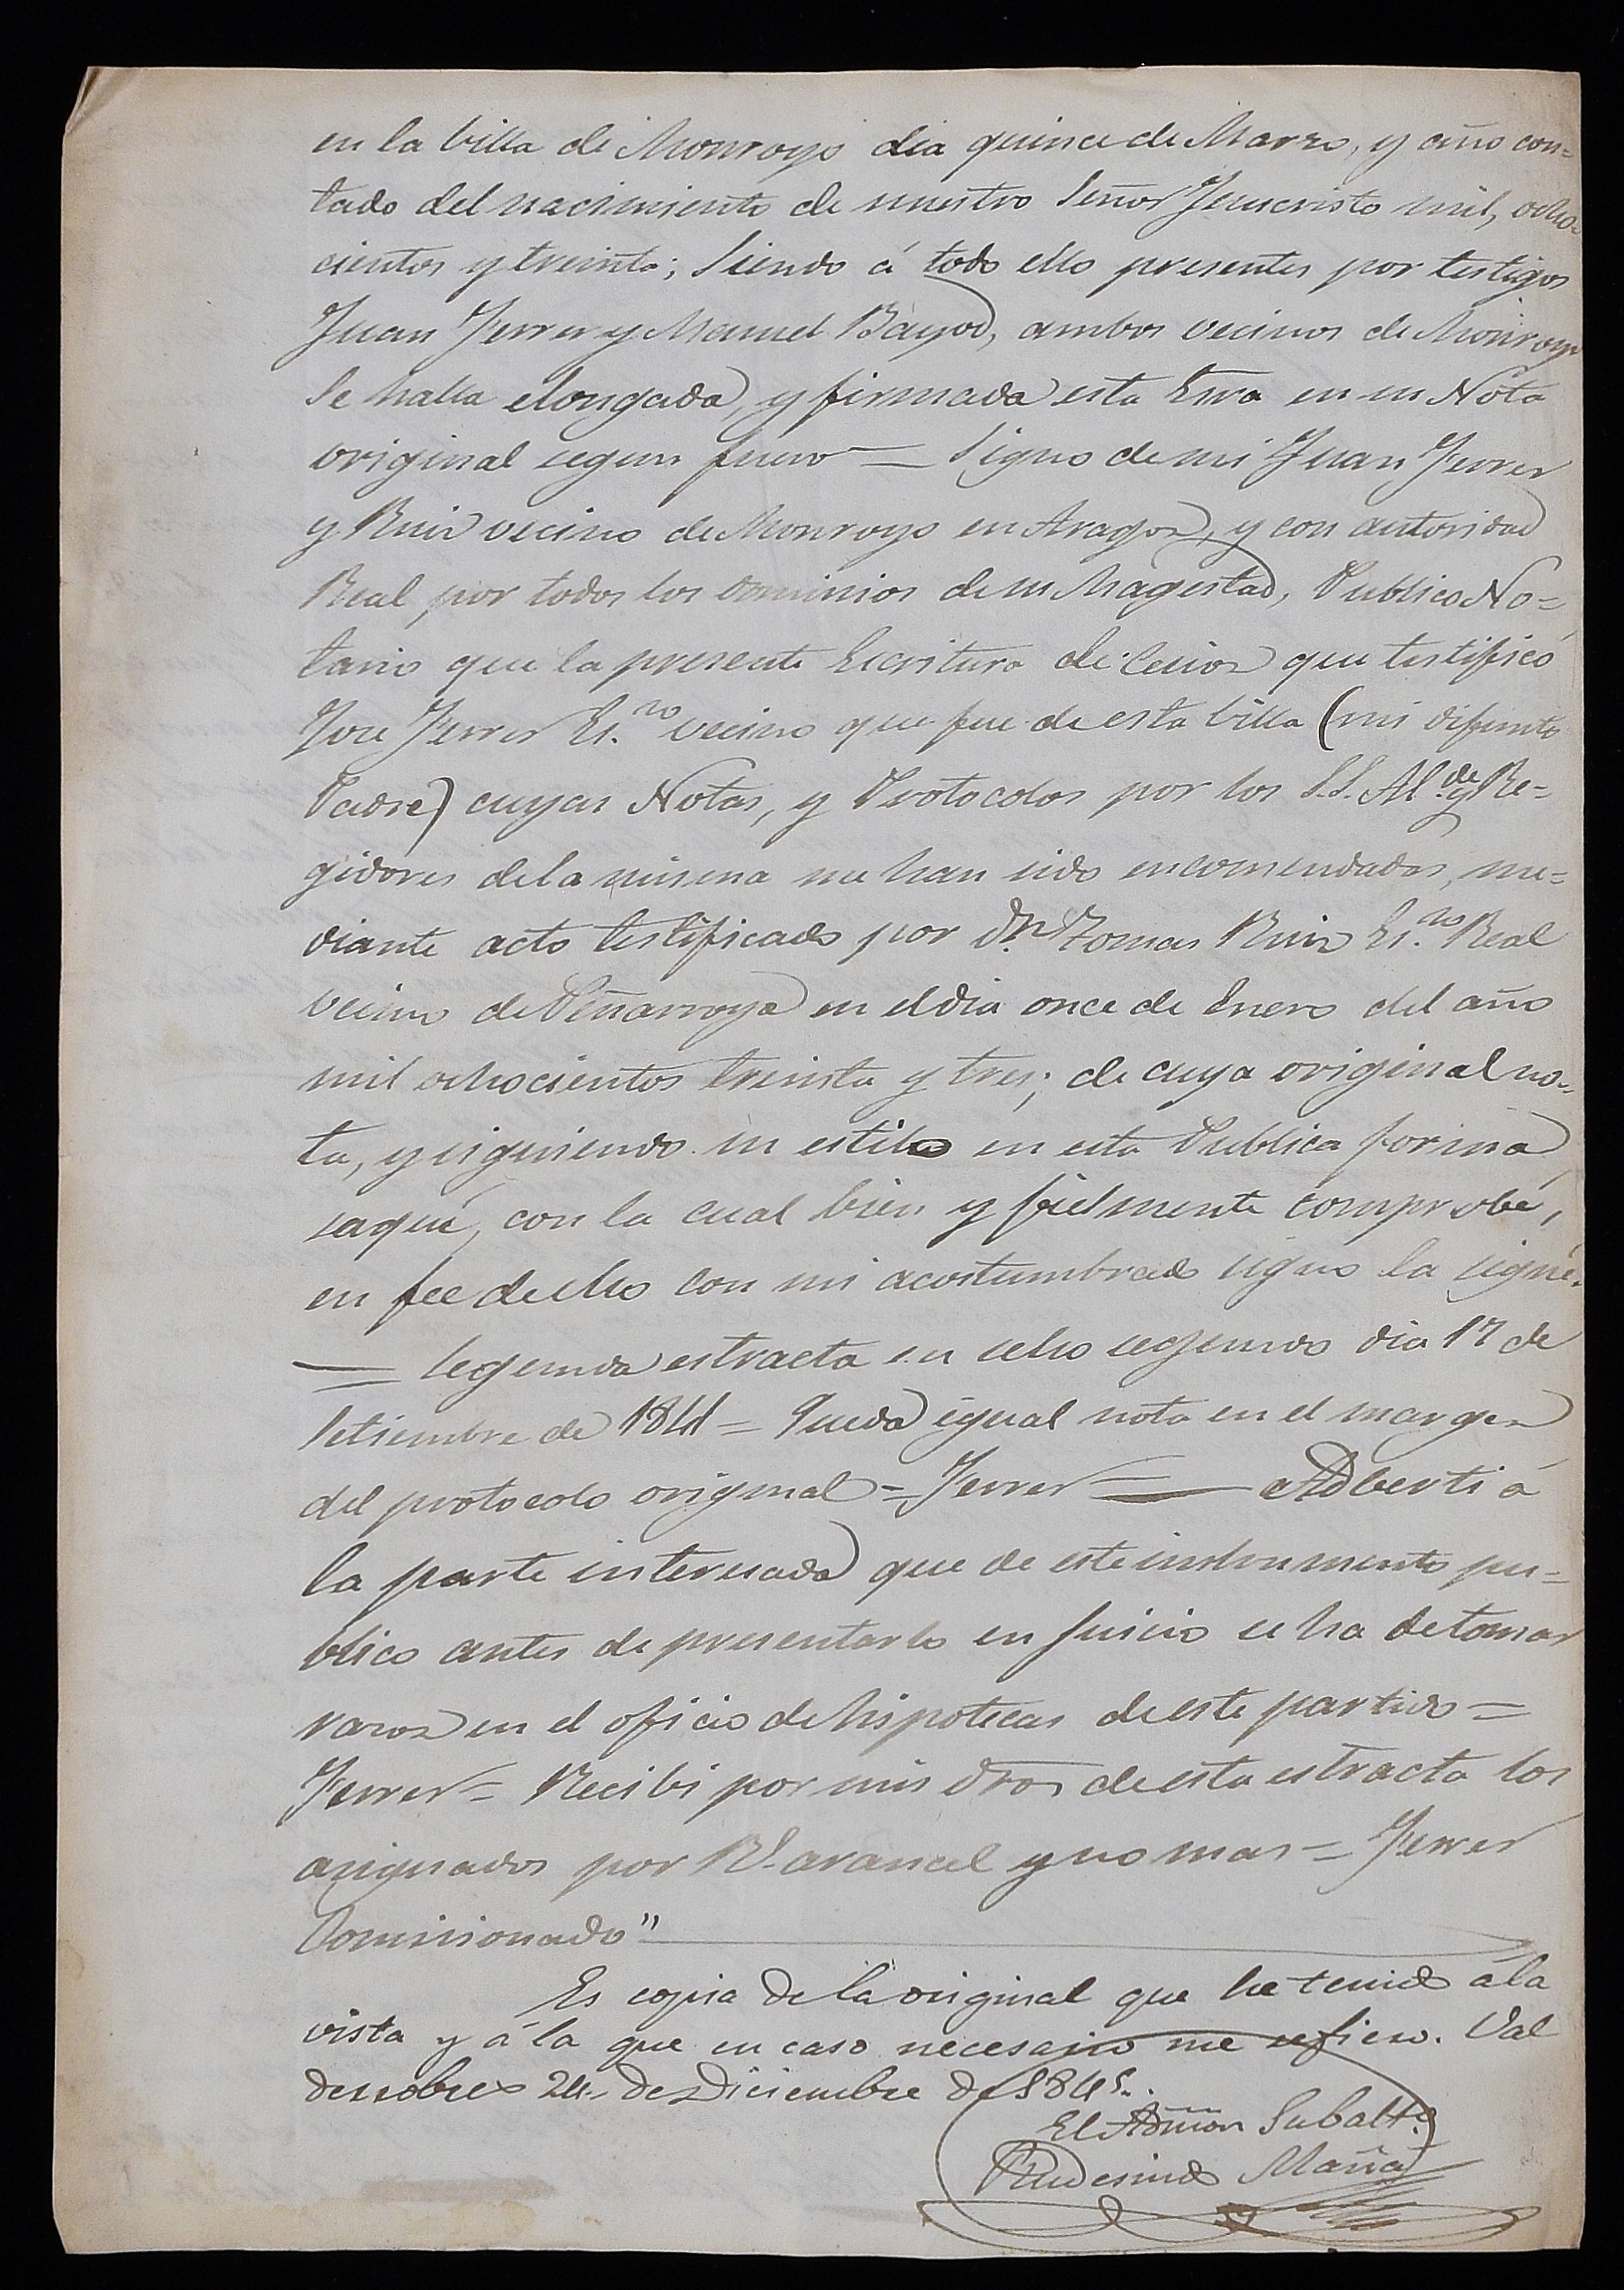 en la billa de Monroyo dia quince de Marzo, y año con=
tado del nacimiento de nuestro Señor Jesucristo mil, ocho=
cientos y treinta; Siendo á todo ello presentes por testigos
Juan Ferrer y Manuel Bayod, ambos vecinos de Monroyo
Se halla elongada, y firmada esta Esra en su Nota
original segun fuero = Signo de mi Juan Ferrer
y Ruiz vecino de Monroyo en Aragon, y con autoridad
Real, por todos los dominios de su Magestad, Publico No=
tario que la presente Escritura de Cesion que testificó
Jose Ferrer Es.no vecino que fue de esta billa (mi difunto
Padre) cuyas Notas, y Protocolos por los S.S. Al.de y Re=
gidores de la misma me han sido encomendados, me=
diante acto testificado por Dn. Tomas Ruiz Es.no Real
vecino de Peñarroya en el dia once de Enero del año
mil ochocientos treinta y tres; de cuya original no=
ta, y siguiendo su estilo en esta Publica forma
saqué, con la cual bien y fielmente comprobé,
en fee de ello con mi acostumbrado signo la signé.
= Segunda estracta en sello segundo dia 17 de
Setiembre de 1841 = Queda igual nota en el margen
del protocolo original = Ferrer = Adberti á
la parte interesada que de este instrumento pu=
blico antes de presentarlo en Juicio se ha de tomar
razon en el oficio de hispotecas de este partido =
Ferrer = Recibi por mis dros de esta estracta los
asignados por Rl. arancel y no mas = Ferrer
Comisionado"
Es copia de la original que he tenido á la
vista y á la que en caso necesario me refiero. Val
derrobres 24 de Diciembre de 1845.
El Admon Subalt.o
Prudesindo Mañá